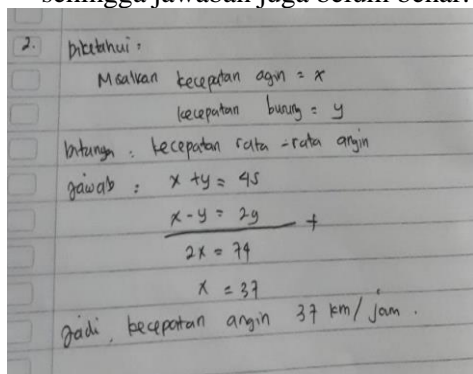 sehingga jawaban juga belum benar.
2. Diketahui :
Misalkan kecepatan agin = x
kecepatan burung = y
Ditanya : kecepatan rata-rata angin
Jawab : x + y = 45
x - y = 29 +
2x = 74
x = 37
Jadi, kecepatan angin 37 km/jam.